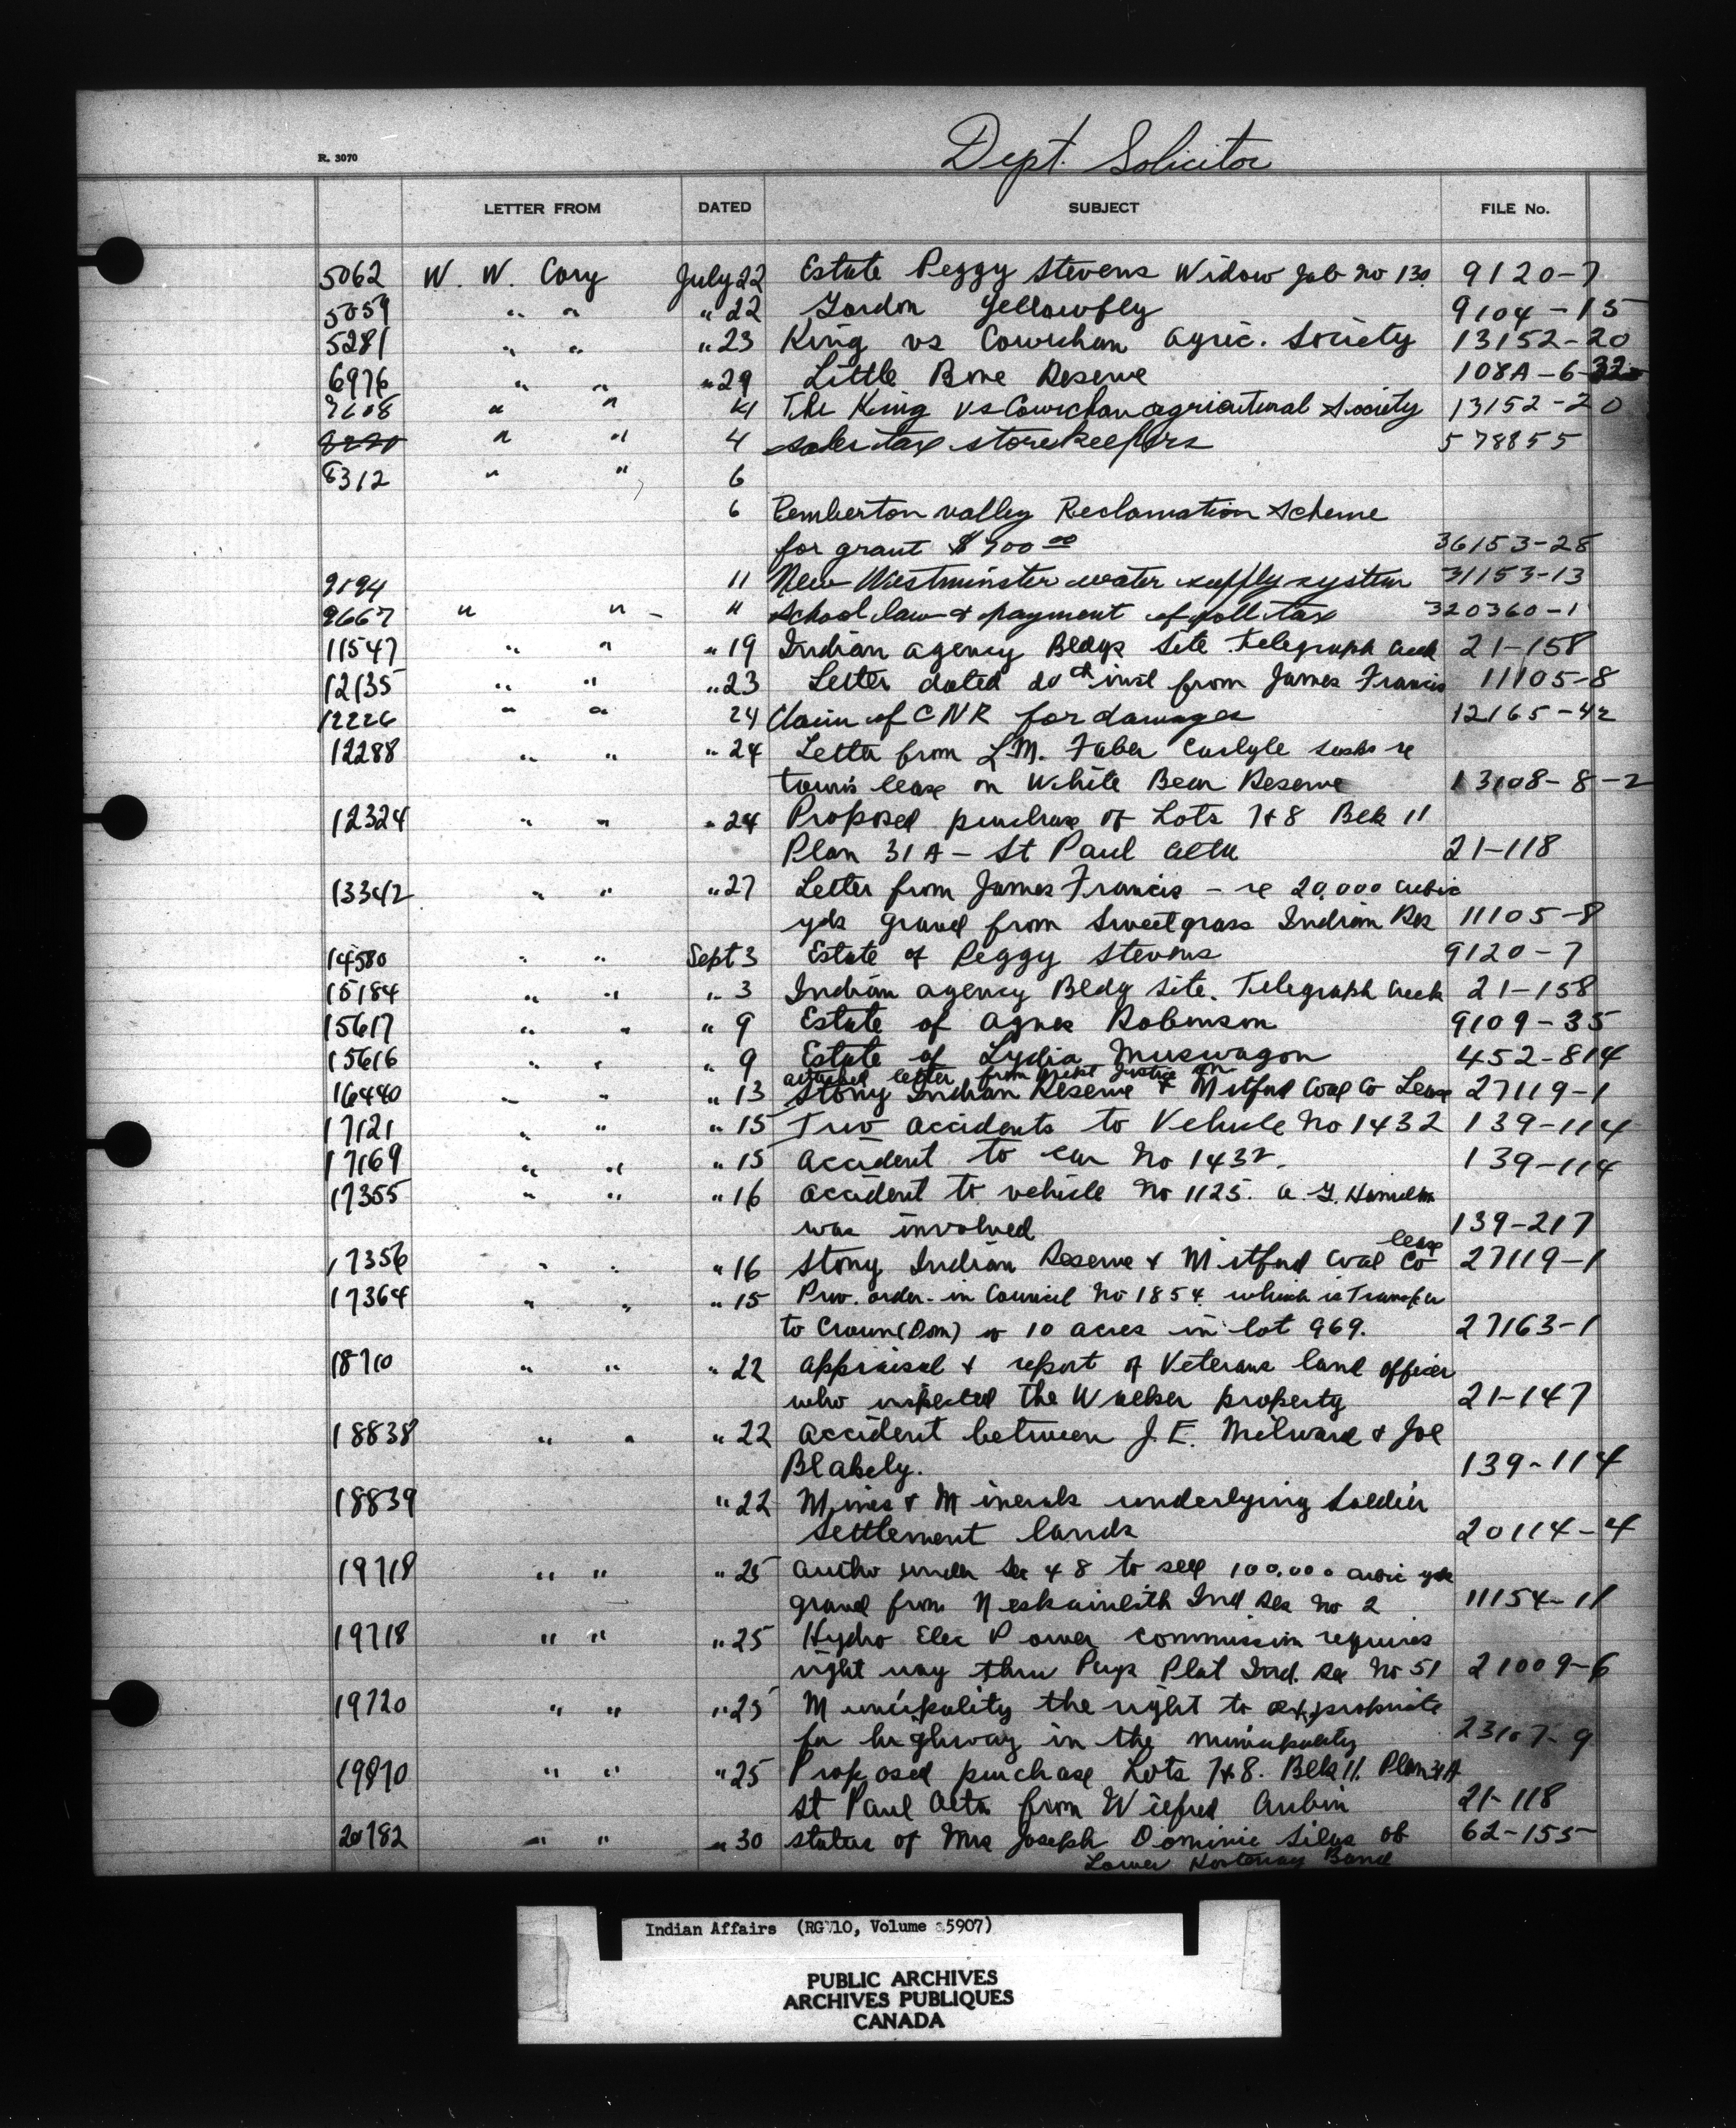 Dept. Solicitor
R. 3070
LETTER FROM DATED SUBJECT FILE No.
5062 W. W. Cory July 22 Estate Peggy Stevens Widow Job No 130. 9120-7
5059 " " " 22 Gordon Yellowfly 9104-15
5281 " " " 23 King vs Cowichan Agric. Society 13152-20
6976 " " " 29 Little Bone Reserve 108A-6-32
" " 4 The King vs Cowichan agricultural Society 13152-20
" " 4 sales tax storekeepers 578855
8312 " " 6
6 Pemberton valley Reclamation Scheme
for grant $900 00 36153-28
9194 11 New Westminster water supply system 31153-13
9667 " " " School law & payment of poll tax 320360-1
11547 " " " 19 Indian agency Bldgs Site Telegraph Creek 21-158
12135 " " " 23 Letter dated 20th inst from James Francis 11105-8
12226 " " 24 Claim of CNR for damages 12165-42
12288 " " " 24 Letter from L.M. Faber Carlyle Sask re
towns lease on White Bear Reserve 13108-8-2
12324 " " " 24 Proposed purchase of Lots 7&8 Blk 11
Plan 31A - St Paul Alta 21-118
13342 " " " 27 Letter from James Francis - re 20,000 cubic
yds gravel from Sweetgrass Indian Res 11105-8
14580 " " Sept 3 Estate of Peggy Stevens 9120-7
15184 " " " 3 Indian agency Bldg Site. Telegraph Creek 21-158
15617 " " " 9 Estate of Agnes Robinson 9109-35
15616 " " " 9 Estate of Lydia Muswagon 452-814
attached letter from Dept Justice on
16440 " " " 13 Stony Indian Reserve & Mitford Coal Co Lease 27119-1
17121 " " " 15 Two accidents to Vehicle No 1432 139-114
17169 " " " 15 accident to car No 1432. 139-114
17355 " " " 16 accident to vehicle No 1125. A. G. Hamilton
was involved 139-217
lease
17356 " " " 16 Stony Indian Reserve & Mitford Coal Co 27119-1
17364 " " " 15 Prov. order-in Council No 1854 which is Transfer
to Crown (Dom) of 10 acres in lot 969. 27163-1
18710 " " " 22 appraisal & report of Veterans land officer
who inspected the Walker property 21-147
18838 " " " 22 accident between J. E. Milward & Joe
Blakely. 139-114
18839 " 22 Mines & Minerals underlying Soldier
Settlement lands 20114-4
19718 " " " 25 Autho under Sec 48 to sell 100,000 cubic yds
gravel from Neskainlith Ind Res No 2 11154-11
19718 " " " 25 Hydro Elec Power commission requires
right way thru Pays Plat Ind. Res No 51 21009-6
19720 " " " 25 Municipality the right to expropriate
for highway in the municipality 23107-9
19870 " " " 25 Proposed purchase Lots 7&8. Blk 11. Plan 31A
St Paul Alta from Wilfred Aubin 21-118
20782 " " " 30 status of Mrs Joseph Dominic Silas of 62-155
Lower Kootenay Band
Indian Affairs (RG 10, Volume 5907)
PUBLIC ARCHIVES
ARCHIVES PUBLIQUES
CANADA